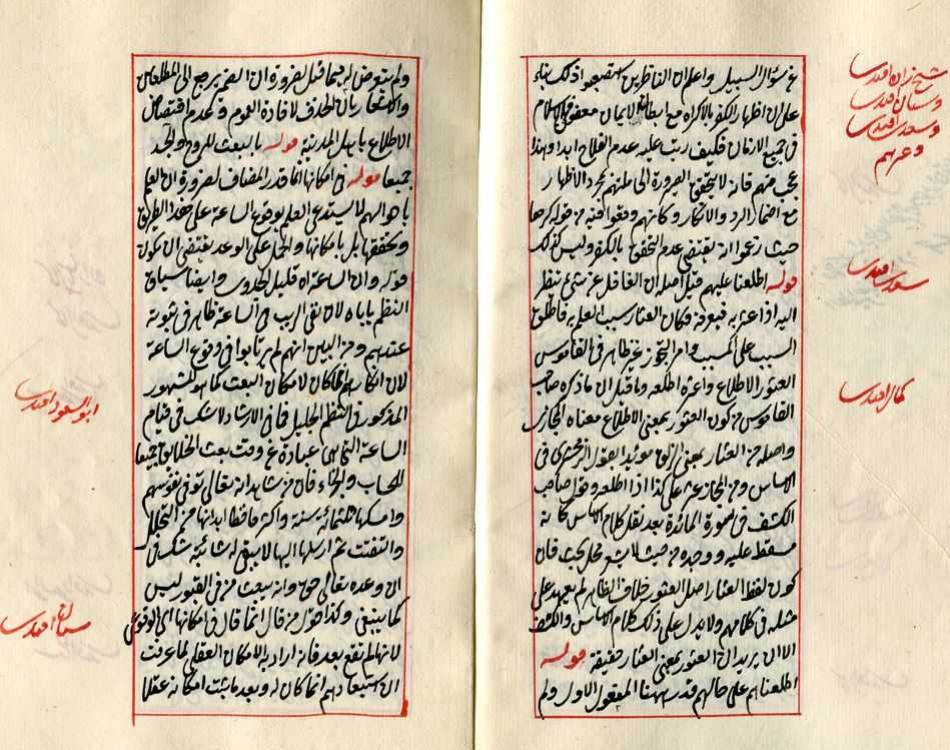 عن سواء السبيل واعلم ان الناظرين استصعبوا ذلك بناء
على ان اظهار الكفر بالاكراه مع ابطان الايمان معفو في الاسلام
في جميع الازمان فكيف رتب عليه عدم الفلاح ابدا وهذا
عجب منهم فانه لا يتحقق الضرورة الى ملتهم بمجرد الاظهار
مع اضمار الرد والانكار وكأنهم وقعوا فيه من قوله كرها
حيث زعموا انه يقتضي عدم التحقق بالكفر وليس كذلك
قوله اطلعنا عليهم قيل اصله ان الغافل عن شيء ينظر
اليه اذا عثر به فيعرفه فكان العثار سبب العلم به فاطلق
السبب على المسبب وامر التجوز غير ظاهر في القاموس
العثور الاطلاع واعثره اطلعه وما قيل ان ما ذكره صاحب
القاموس من كون العثور بمعنى الاطلاع معناه المجازي
واصله من العثار بمعنى الزلق مؤيد القول الزمخشري في
الاساس ومن المجاز عثر على كذا اذا اطلعه وقول صاحب
الكشف في سورة المائدة بعد نقل كلام الاساس كانه
مسقط عليه ووجده من حيث لا يشعر محل بحث فان
كون لفظ العثار اصل العثور خلاف الظاهر لم يعهد على
مثله في كلامهم ولا يدل على ذلك كلام الاساس والكشف
الا ان يريد ان العثور بمعنى العثار حقيقة قوله
اطلعناهم على حالهم قدر ههنا المفعول الاول ولم
شيخ زاده افندي
وسنان افندي
وسعدي افندي
وغيرهم
سعدي افندي
كمال افندي
ولم يتعرض له فيما قبل لضرورة ان الضمير يرجع الى المطلعين
والاشعار بان الحذف لافادة العموم وعدم اختصاص
الاطلاع باهل المدينة قوله بالبعث للروح والجسد
جميعا قوله في امكانها انما قدر المضاف لضرورة ان العلم
باحوالهم لا يستدعي العلم بوقوع الساعة على هذا الطريق
وتحققها بل بامكانها والحمل على الوعد يقتضي ان يكون
قوله وان الساعة اه قليل الجدوى وايضا سياق
النظم يأباه لان نفي الريب في الساعة ظاهر في ثبوته
عندهم ومن البين انهم لم يرتابوا في وقوع الساعة
لان انكارهم انما كان لامكان البعث كما هو المشهور
المذكور في النظم الجليل فما في الارشاد لا شك في قيام
الساعة التي هي عبارة عن وقت بعث الخلايق جميعا
للحساب والجزاء فان من شاهد انه تعالى توفى نفوسهم
وامسكها ثلثمائة سنة واكثر حافظا ابدانها من التحلل
والتفتت ثم ارسلها اليها لا يبقى له شائبة شك في
ان وعده تعالى حق وانه يبعث من في القبور ليس
كما ينبغي وكذا قول من قال انما قال في امكانها اي الوقوعي
لانها لم تقع بعد فانه اراد به الامكان العقلي لما عرفت
ان استبعادهم انما كان له وبعد ما ثبت امكانه عقلا
ابو السعود افندي
سنان افندي